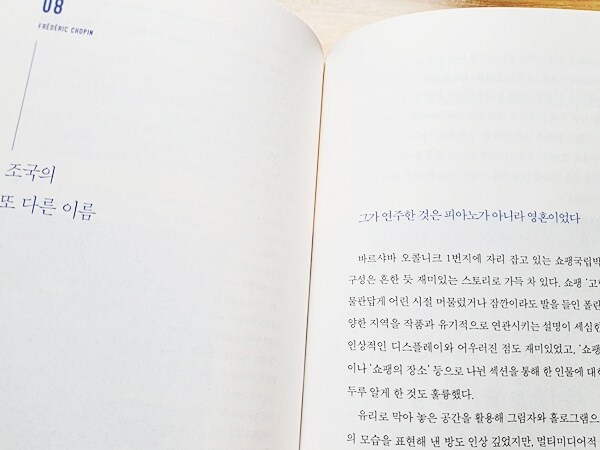 08
FRÉDÉRIC CHOPIN
조국의
또 다른 이름
그가 연주한 것은 피아노가 아니라 영혼이었다
바르샤바 오콜니크 1번지에 자리 잡고 있는 쇼팽국립박
구성은 흔한 듯 재미있는 스토리로 가득 차 있다. 쇼팽 '고
물관답게 어린 시절 머물렀거나 잠깐이라도 발을 들인 폴란
양한 지역을 작품과 유기적으로 연관시키는 설명이 세심한
인상적인 디스플레이와 어우러진 점도 재미있었고, '쇼팽
이나 '쇼팽의 장소' 등으로 나뉜 섹션을 통해 한 인물에 대
두루 알게 한 것도 훌륭했다.
유리로 막아 놓은 공간을 활용해 그림자와 홀로그램으
의 모습을 표현해 낸 방도 인상 깊었지만, 멀티미디어적